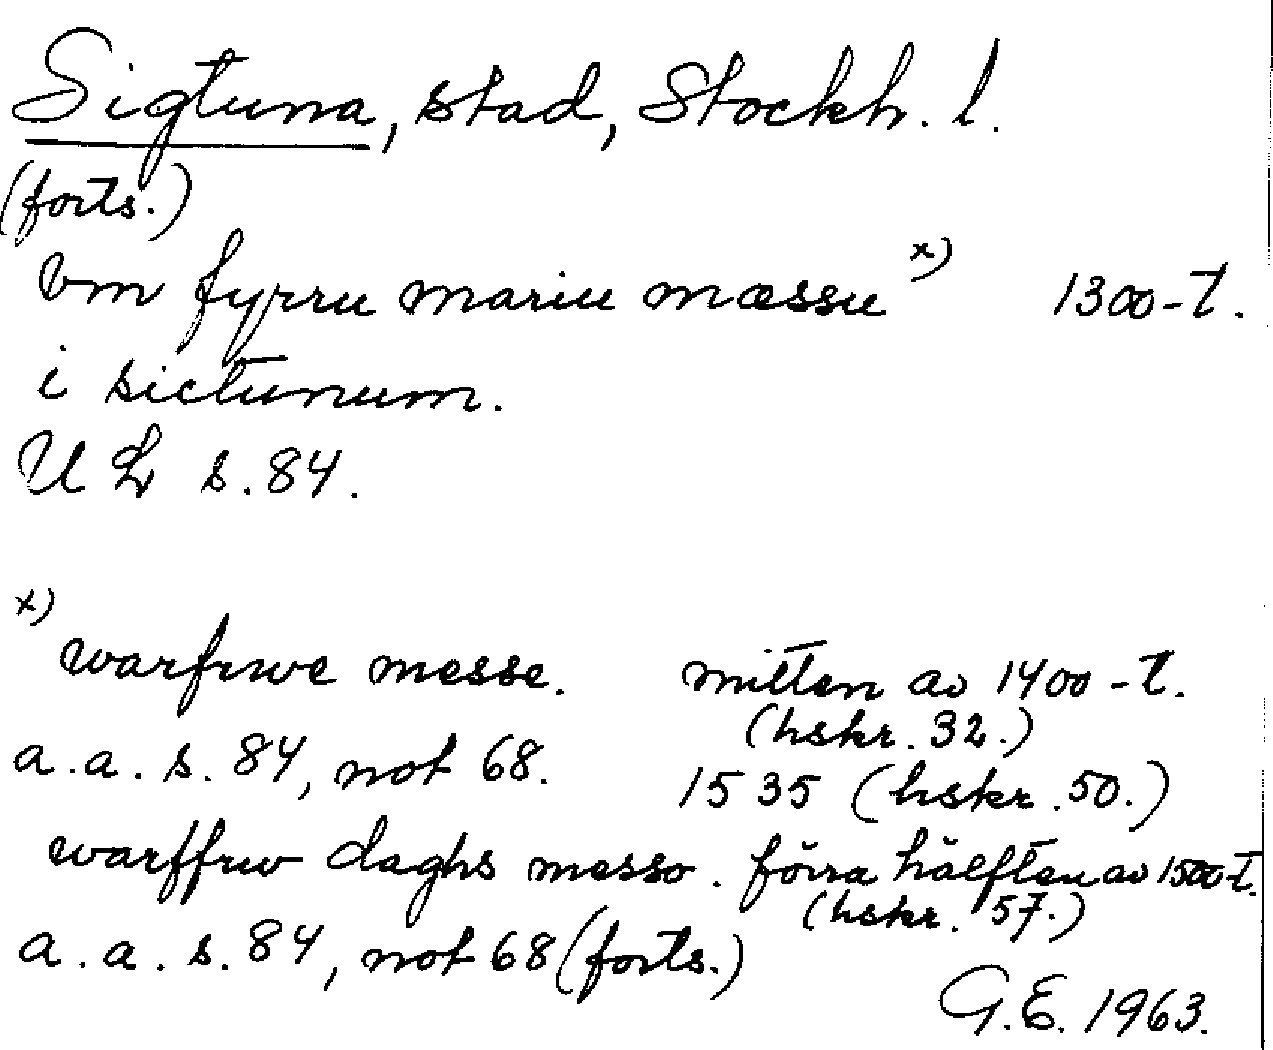 Sigtuna, stad, Stockh. l.
(forts.)
vm fyrru mariu mæssu x) 1300-t.
i sictunum.
UL s. 84.
x) warfrwe messe. mitten av 1400-t.
(hskr. 32.)
a.a. s. 84, not 68. 1535 (hskr. 50.)
warffrw daghs messo. förra hälften av 1500-t.
(hskr. 57.)
a.a. s. 84, not 68 (forts.)
G.E. 1963.